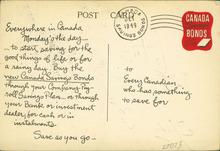 POST CARD
CANADA
BONDS
CANADA
1949
SAVINGS BONDS
Everywhere in Canada
Monday's the day
to start saving for the
good things of life or for
a rainy day. Buy the
new Canada Savings Bonds
through your Company Pay-
roll Savings Plan - or through
your Bank or investment
dealer for cash or in
instalments.
Save as you go -
to
Every Canadian
who has something
to save for